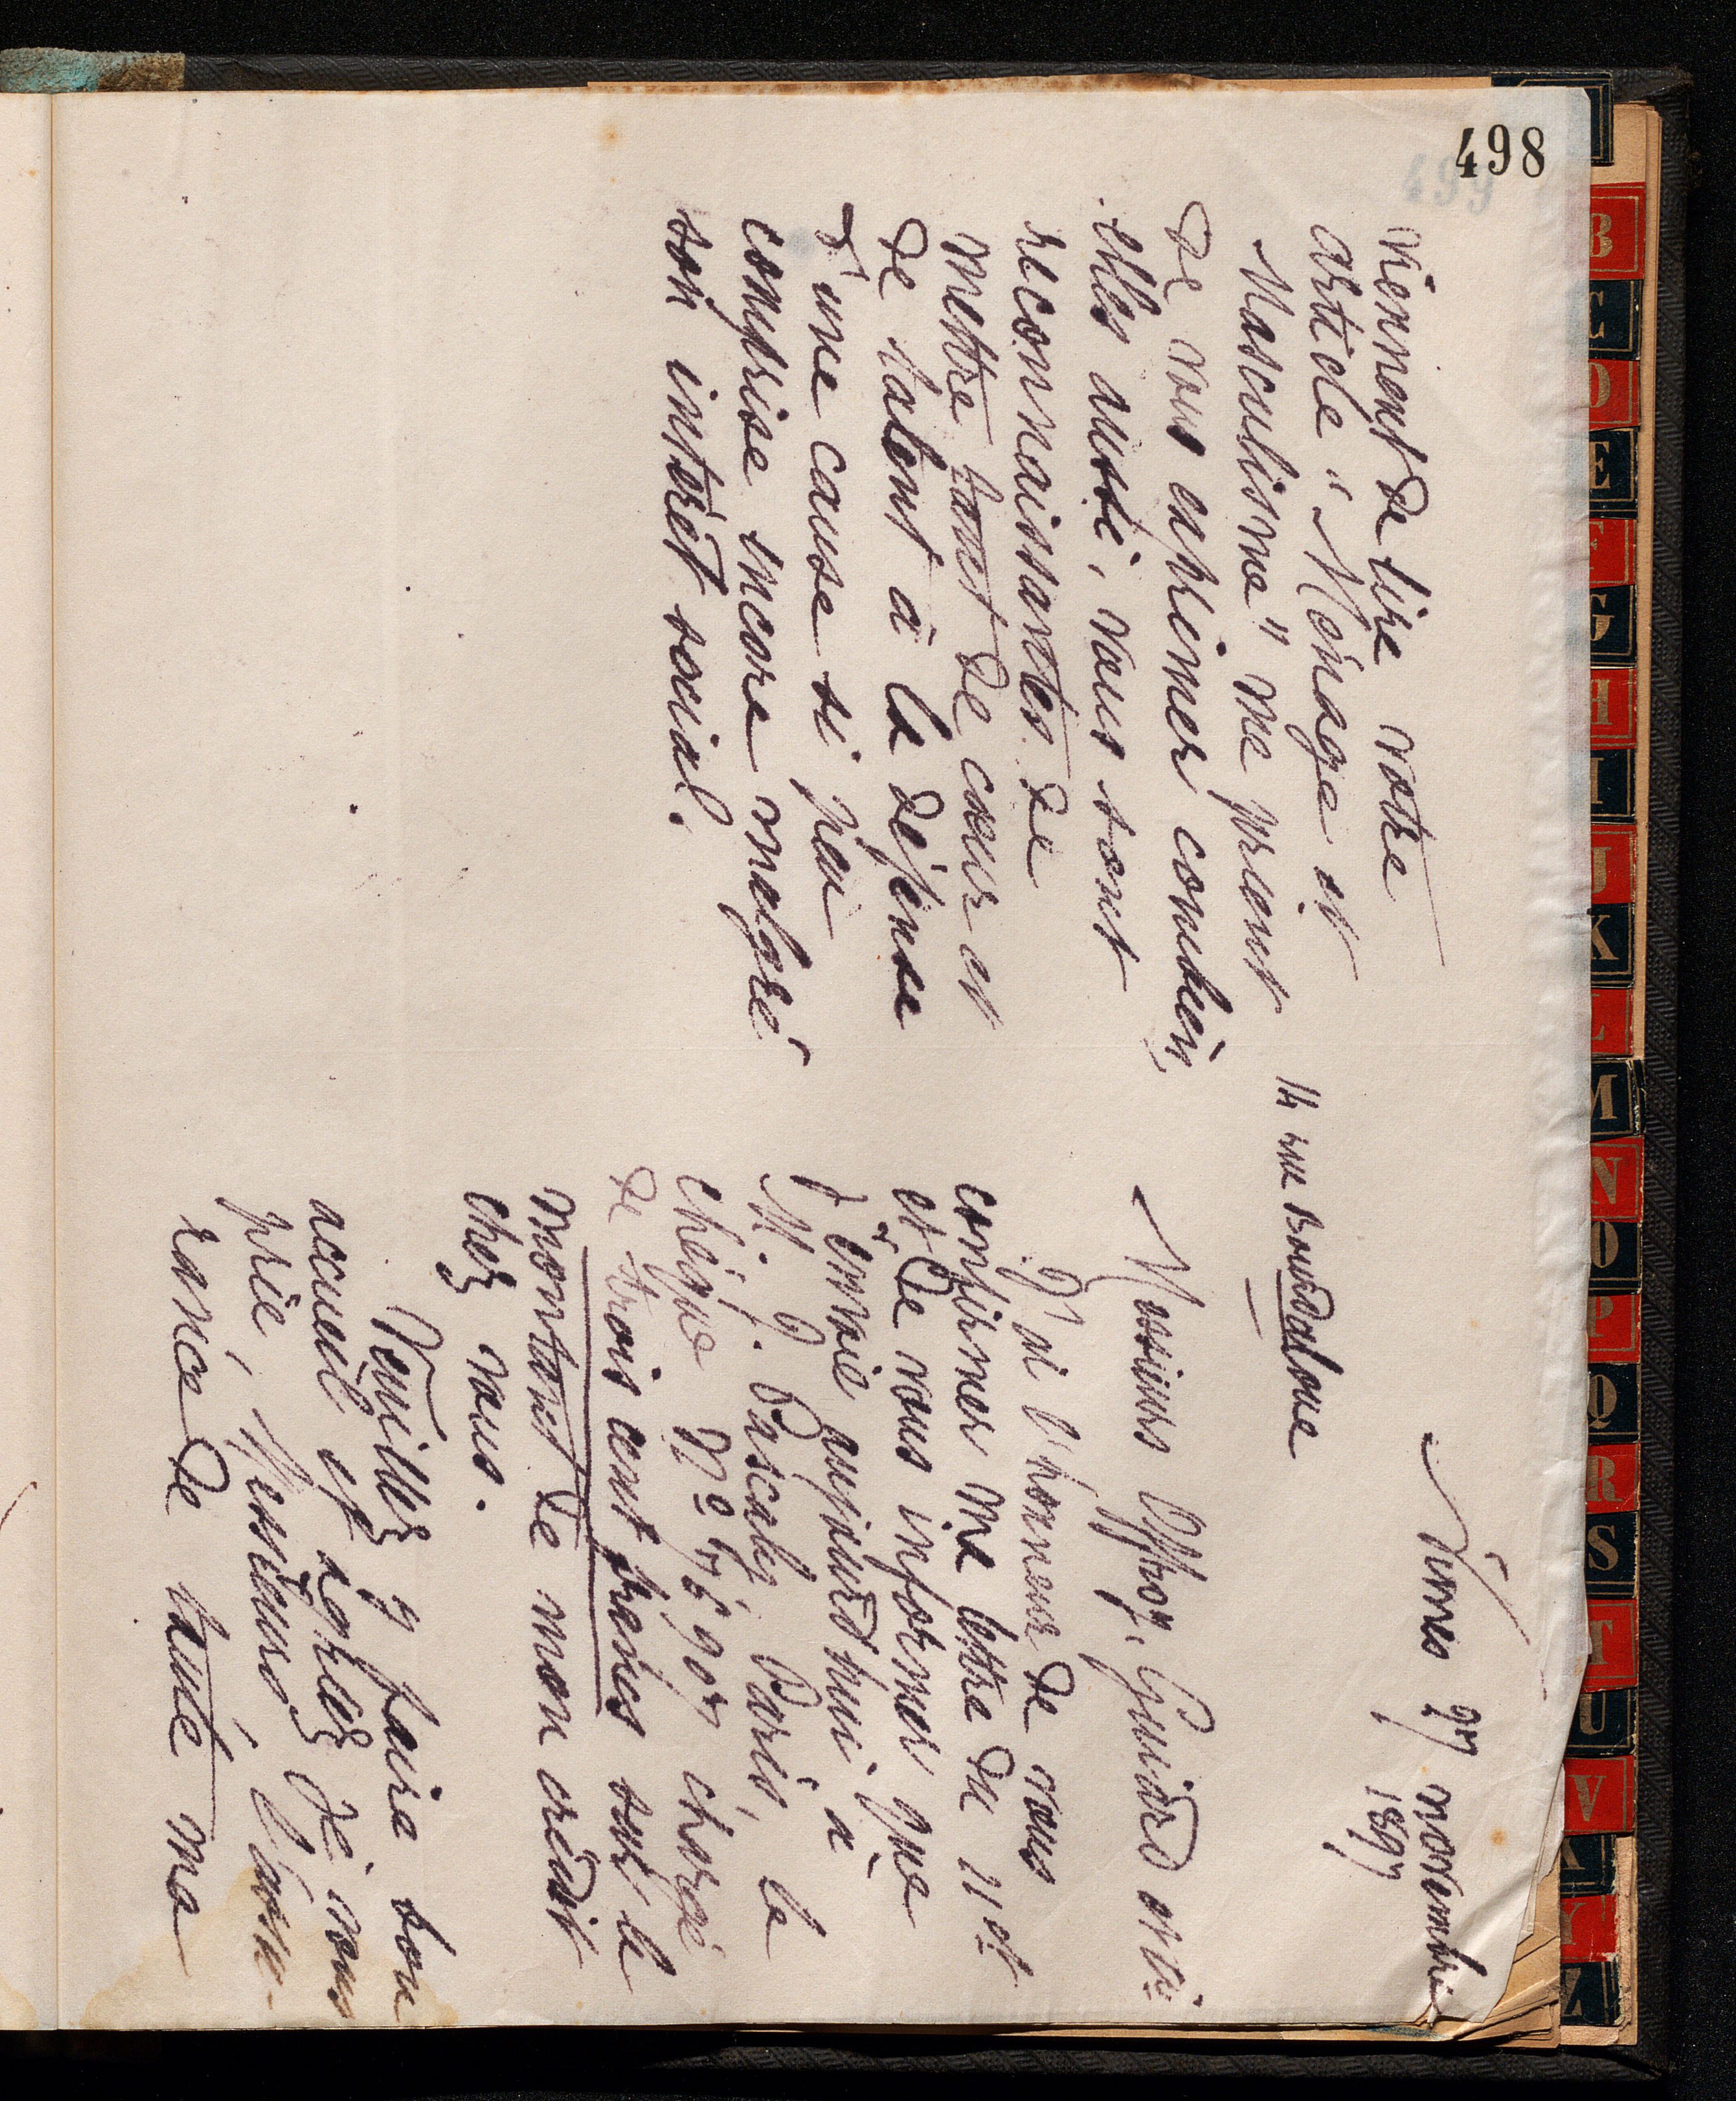 498
viennent de lire votre
article "Ménage et
Masculisme" me prient
de vous exprimer combien,
elles aussi, vous sont
reconnaissantes de
mettre tant de cœur et
de talent à la défense
d'une cause si peu
comprise encore malgré
son intérêt social.
Nimes 27 novembre
1897
14 rue Bourdaloue
Messieurs Offroy, Guiard &
J'ai l'honneur de vous
confirmer ma lettre du 11 ct
et de vous informer que
j'envoie aujourd'hui à
M. J. Pascaly, Paris, le
chèque No chargé
de trois cent francs sur le
montant de mon crédit
chez vous.
Veuillez y faire bon
accueil et agréez je vous
prie, Messieurs, l'assu-
rance de toute ma
B
C
D
E
F
G
H
I
J
K
L
M
N
O
P
Q
R
S
T
U
V
X
Y
Z